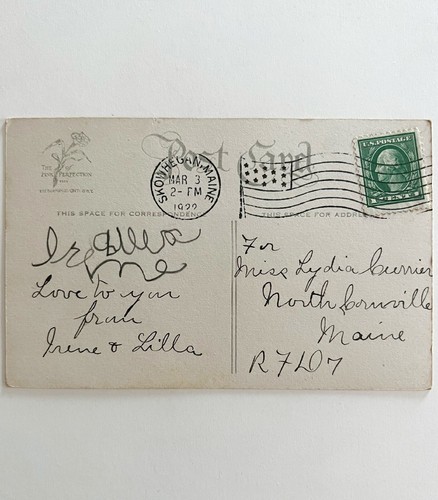 THE
PINK PERFECTION
Post Card
SKOWHEGAN, MAINE
MAR 3
2 - PM
1922
U.S. POSTAGE
1 CENT 1
THIS SPACE FOR CORRESPONDENCE
THIS SPACE FOR ADDRESS
Love to you
from
Irene & Lilla
For
Miss Lydia Currier
North Cornville
Maine
R F D 7